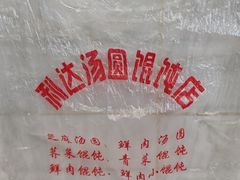 利达汤圆馄饨店
鲜肉汤圆
荠菜馄饨 青菜馄饨
鲜肉馄饨 鲜肉小馄饨